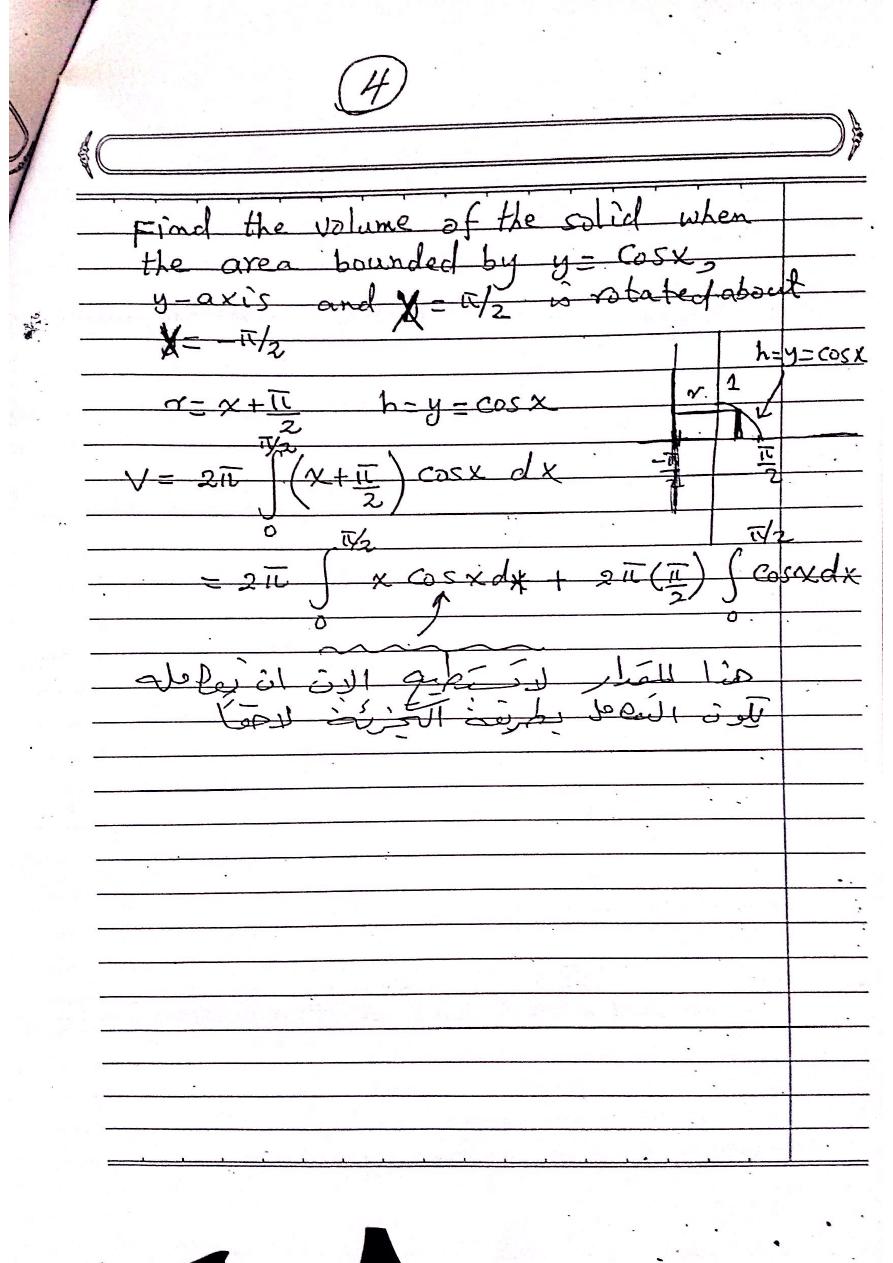 4
Find the volume of the solid when
the area bounded by y = cosx,
y-axis and X = π/2 is rotated about
X = -π/2
h=y=cosx
r = x + π/2 h = y = cosx
r 1
-π/2 π/2
V = 2π ∫₀^{π/2} (x + π/2) cosx dx
= 2π ∫₀^{π/2} x cosx dx + 2π(π/2) ∫₀^{π/2} cosxdx
هذا المقدار لا نستطيع الان ان
يكون التكامل بطريقة التجزئة لاحقاً